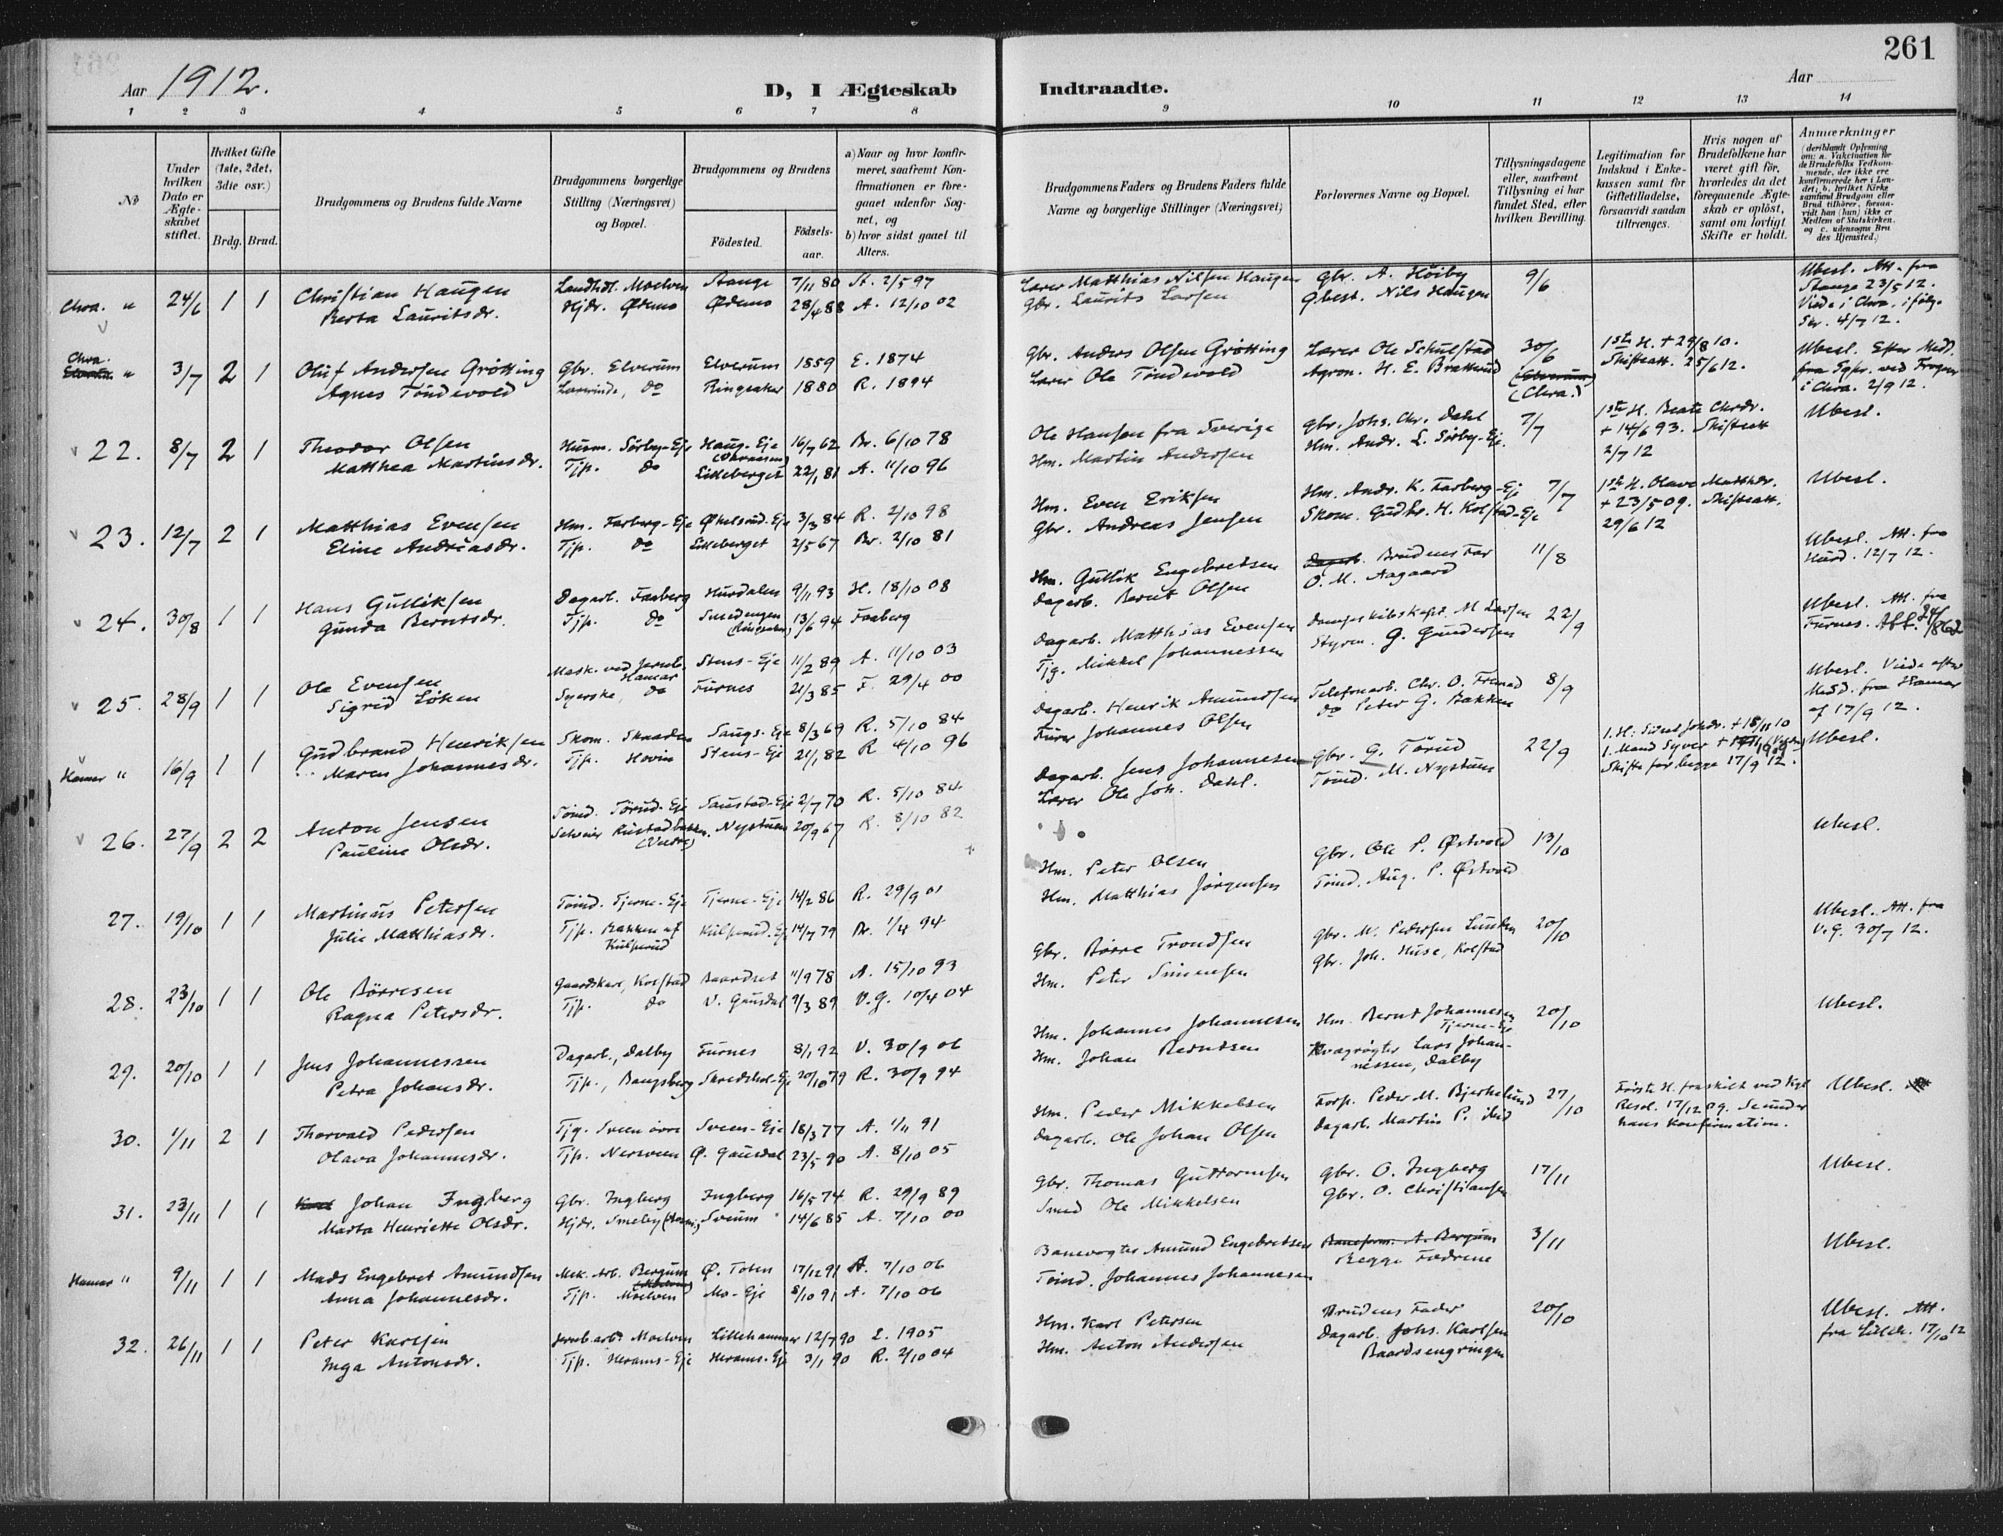 261
Aar 1912.
D, I Ægteskab Indtraadte.
Aar
1 2 3 4 5 6 7 8 9 10 11 12 13 14
No
Under hvilken Dato er Ægteskabet stiftet.
Hvilket Gifte (1ste, 2det, 3die osv.)
Brdg. Brud.
Brudgommens og Brudens fulde Navne
Brudgommens borgerlige Stilling (Næringsvei) og Bopæl.
Brudgommens og Brudens
Födested.
Födselsaar.
a) Naar og hvor konfirmeret, saafremt Konfirmationen er foregaaet udenfor Sognet, og
b) hvor sidst gaaet til Alters.
Brudgommens Faders og Brudens Faders fulde Navne og borgerlige Stillinger (Næringsvei)
Forlovernes Navne og Bopæl.
Tillysningsdagene eller, saafremt Tillysning ei har fundet Sted, efter hvilken Bevilling.
Legitimation for Indskud i Enkekassen samt for Giftetilladelse, forsaavidt saadan tiltrænges.
Hvis nogen af Brudefolkene har været gift för, hvorledes da det foregaaende Ægteskab er oplöst, samt om lovligt Skifte er holdt.
Anmærkninger (deriblandt Oplysning om: a. Vakcination for de Brudefolks Vedkommende, der ikke ere konfirmerede her i Landet; b. hvilket Kirkesamfund Brudgom eller Brud tilhörer, forsaavidt han (hun) ikke er Medlem af Statskirken, og c. udensogns Brudes Hjemsted.)
Chra. " 24/6 1 1 Christian Haugen Landhdl. Moelven Stange 7/11 80 St. 2/5 97 Lærer Matthias Nilsen Haugen Gbr. A. Höiby 9/6 Ubesl. Att. fra
Berta Lauritsdr. Hjdr. Ødemo Ødemo 28/4 88 A. 12/10 02 Gbr. Laurits Larsen Gbest. Nils Haugen Stange 23/5 12.
Viede i Chra. ifølge
Skr. 4/7 12.
Chra. " 3/7 2 1 Oluf Andersen Grötting Gbr. Elverum Elverum 1859 E. 1874 Gbr. Anders Olsen Grötting Lærer Ole Skulstad 30/6 1ste H. + 29/8 10. Ubesl. Efter Medd.
Agnes Töndevold Lærerinde, do Ringsaker 1880 R. 1894 Lærer Ole Töndevold Agron. H. E. Bratterud (Chra.) Skifteatt. 25/6 12. fra Spr. ved Frogner
i Chra. 2/9 12.
22. 8/7 2 1 Theodor Olsen Husm. Sörby-Eje Haug-Eje 16/7 62 Br. 6/10 78 Ole Hansen fra Sverige Gbr. Johs. Chr. Dahl 7/7 1ste H. Beate Chrdr. Ubesl.
Matthea Martinsdr. Tjp. do Lilleberget 22/1 81 A. 11/10 96 Hm. Martin Andersen Hm. Andr. L. Sörby-Eje. + 14/6 93. Skifteatt
2/7 12
23. 12/7 2 1 Matthias Evensen Hm. Farberg-Eje Økelsrud-Eje 3/3 84 R. 2/10 98 Hm. Even Eriksen Hm. Andr. K. Farberg-Eje 7/7 1ste H. Olave Matthdr. Ubesl.
Eline Andreasdr. Tjp. do Lilleberget 2/5 67 Br. 2/10 81 Gbr. Andreas Jensen Skom. Gudbr. H. Kolstad-Eje + 23/5 09. Skifteatt.
29/6 12
24. 30/8 1 1 Hans Gulliksen Dagarb. Faaberg Hurdalen 9/11 93 H. 18/10 08 Hm. Gullik Engebretsen Brudens Far 11/8 Ubesl. Att. fra
Gunda Berntsdr. Tjp. do Smedengen (Ringsaker) 13/6 94 Faaberg Dagarb. Bernt Olsen O. M. Aagaard Hurd. 12/7 12.
25. 28/9 1 1 Ole Evensen Mask. ved Jernb. Hamar Stens-Eje 11/2 89 A. 11/10 03 Dagarb. Matthias Evensen Dampskibskapt. M Larsen 22/9 Ubesl. Att. fra
Sigrid Löken Syerske, do Furnes 21/3 85 F. 29/4 00 Tjg. Mikkel Johannessen Styrm. G. Gundersen Furnes.
Hamar " 16/9 1 1 Gudbrand Henriksen Skom. Skaaden Saugs-Eje 8/3 69 R. 5/10 84 Dagarb. Henrik Amundsen Telefonarb. Chr. O. Fremad 8/9 Ubesl. Viede efter
Maren Johannesdr. Tjp. Hovin Stens-Eje 21/1 82 R 4/10 96 Furer Johannes Olsen do Peter G. Bakken Medd. fra Hamar
af 17/9 12.
26. 27/9 2 2 Anton Jensen Tömd. Törud-Eje Saustad-Eje 2/7 70 R. 5/10 84 Dagarb. Jens Johannesen Gbr. G. Törud 22/9 1. H. Sirid Johdr. + 18/11 10 Ubesl.
Pauline Olsdr. Nystuen 20/9 67 R. 8/10 82 Lærer Ole Joh. Dahl. Tömd. M. Nystuen 1. Mand Syver +
Skifte for begge 17/9 12.
27. 19/10 1 1 Martinus Petersen Tömd. Tjerne-Eje Tjerne-Eje 14/2 86 R. 29/9 01 Hm. Peter Olsen Gbr. Ole P. Østvold 13/10 Ubesl.
Julie Matthiasdr. Tjp. Bakken af Kulserud Kulserud-Eje 14/7 79 Br. 1/4 94 Hm. Matthias Jörgensen Tömd. Aug. P. Østvold
28. 23/10 1 1 Ole Börresen Gaardskarl, Kolstad Baardset 11/9 78 A. 15/10 93 Gbr. Börre Trondsen Gbr. M. Pedersen Lunken 20/10 Ubesl. Att. fra
Ragna Petersdr. Tjp. do V. Gausdal 9/3 89 V.G. 10/4 04 Hm. Peter Simensen Gbr. Joh. Huse, Kolstad V.G. 30/7 12.
29. 20/10 1 1 Jens Johannessen Dagarb., Dalby Furnes 8/1 92 V. 30/9 06 Hm. Johannes Johannesen Hm. Bernt Johannesen Tjerne-Eje 20/10 Ubesl.
Petra Johansdr. Tjp., Bangsberg Skredshol-Eje 20/10 79 R. 30/9 94 Hm. Johan Berntsen Kvægrögter Lars Johannessen, Dalby
30. 1/11 2 1 Thorvald Pedersen Tjg. Sveen övre Sveen-Eje 18/3 77 A. 1/11 91 Hm. Peder Mikkelsen Forp. Peder M. Bjerkelund 27/10 Förste H. fraskilt ved Kgl. Ubesl.
Olava Johannesdr. Tjp. Nersveen Ø. Gausdal 23/5 90 A. 8/10 05 Dagarb. Ole Johan Olsen Dagarb. Martin P. ibid Resol. 17/12 09. Se under
hans Konfirmation.
31. 23/11 1 1 Johan Ingberg Gbr. Ingberg Ingberg 16/5 74 R. 29/9 89 Gbr. Thomas Guttormsen Gbr. O. Ingberg 17/11 Ubesl.
Marta Henriette Olsdr. Hjdr. Smeby Sveum 14/6 85 A. 7/10 00 Smed Ole Mikkelsen Gbr. O. Christiansen
Hamar " 9/11 1 1 Mads Engebret Amundsen Mek. Arb. Bergum Ø. Toten 17/12 91 A. 7/10 06 Banevogter Amund Engebretsen Baneform. A. Bergum 3/11 Ubesl.
Anna Johannesdr. Tjp. Moelven Mo-Eje 8/10 91 A. 7/10 06 Tömd. Johannes Johannesen Begge Fædrene
32. 26/11 1 1 Peter Karlsen Jernb.arb. Moelven Lillehammer 12/7 90 L. 1905 Hm. Karl Petersen Brudens Fader 20/10 Ubesl. Att.
Inga Antonsdr. Tjp. Herams-Eje Herams-Eje 3/1 90 R. 2/10 04 Hm. Anton Andersen Dagarb. Johs. Karlsen fra Lilleh. 17/10 12
Baardsengringen